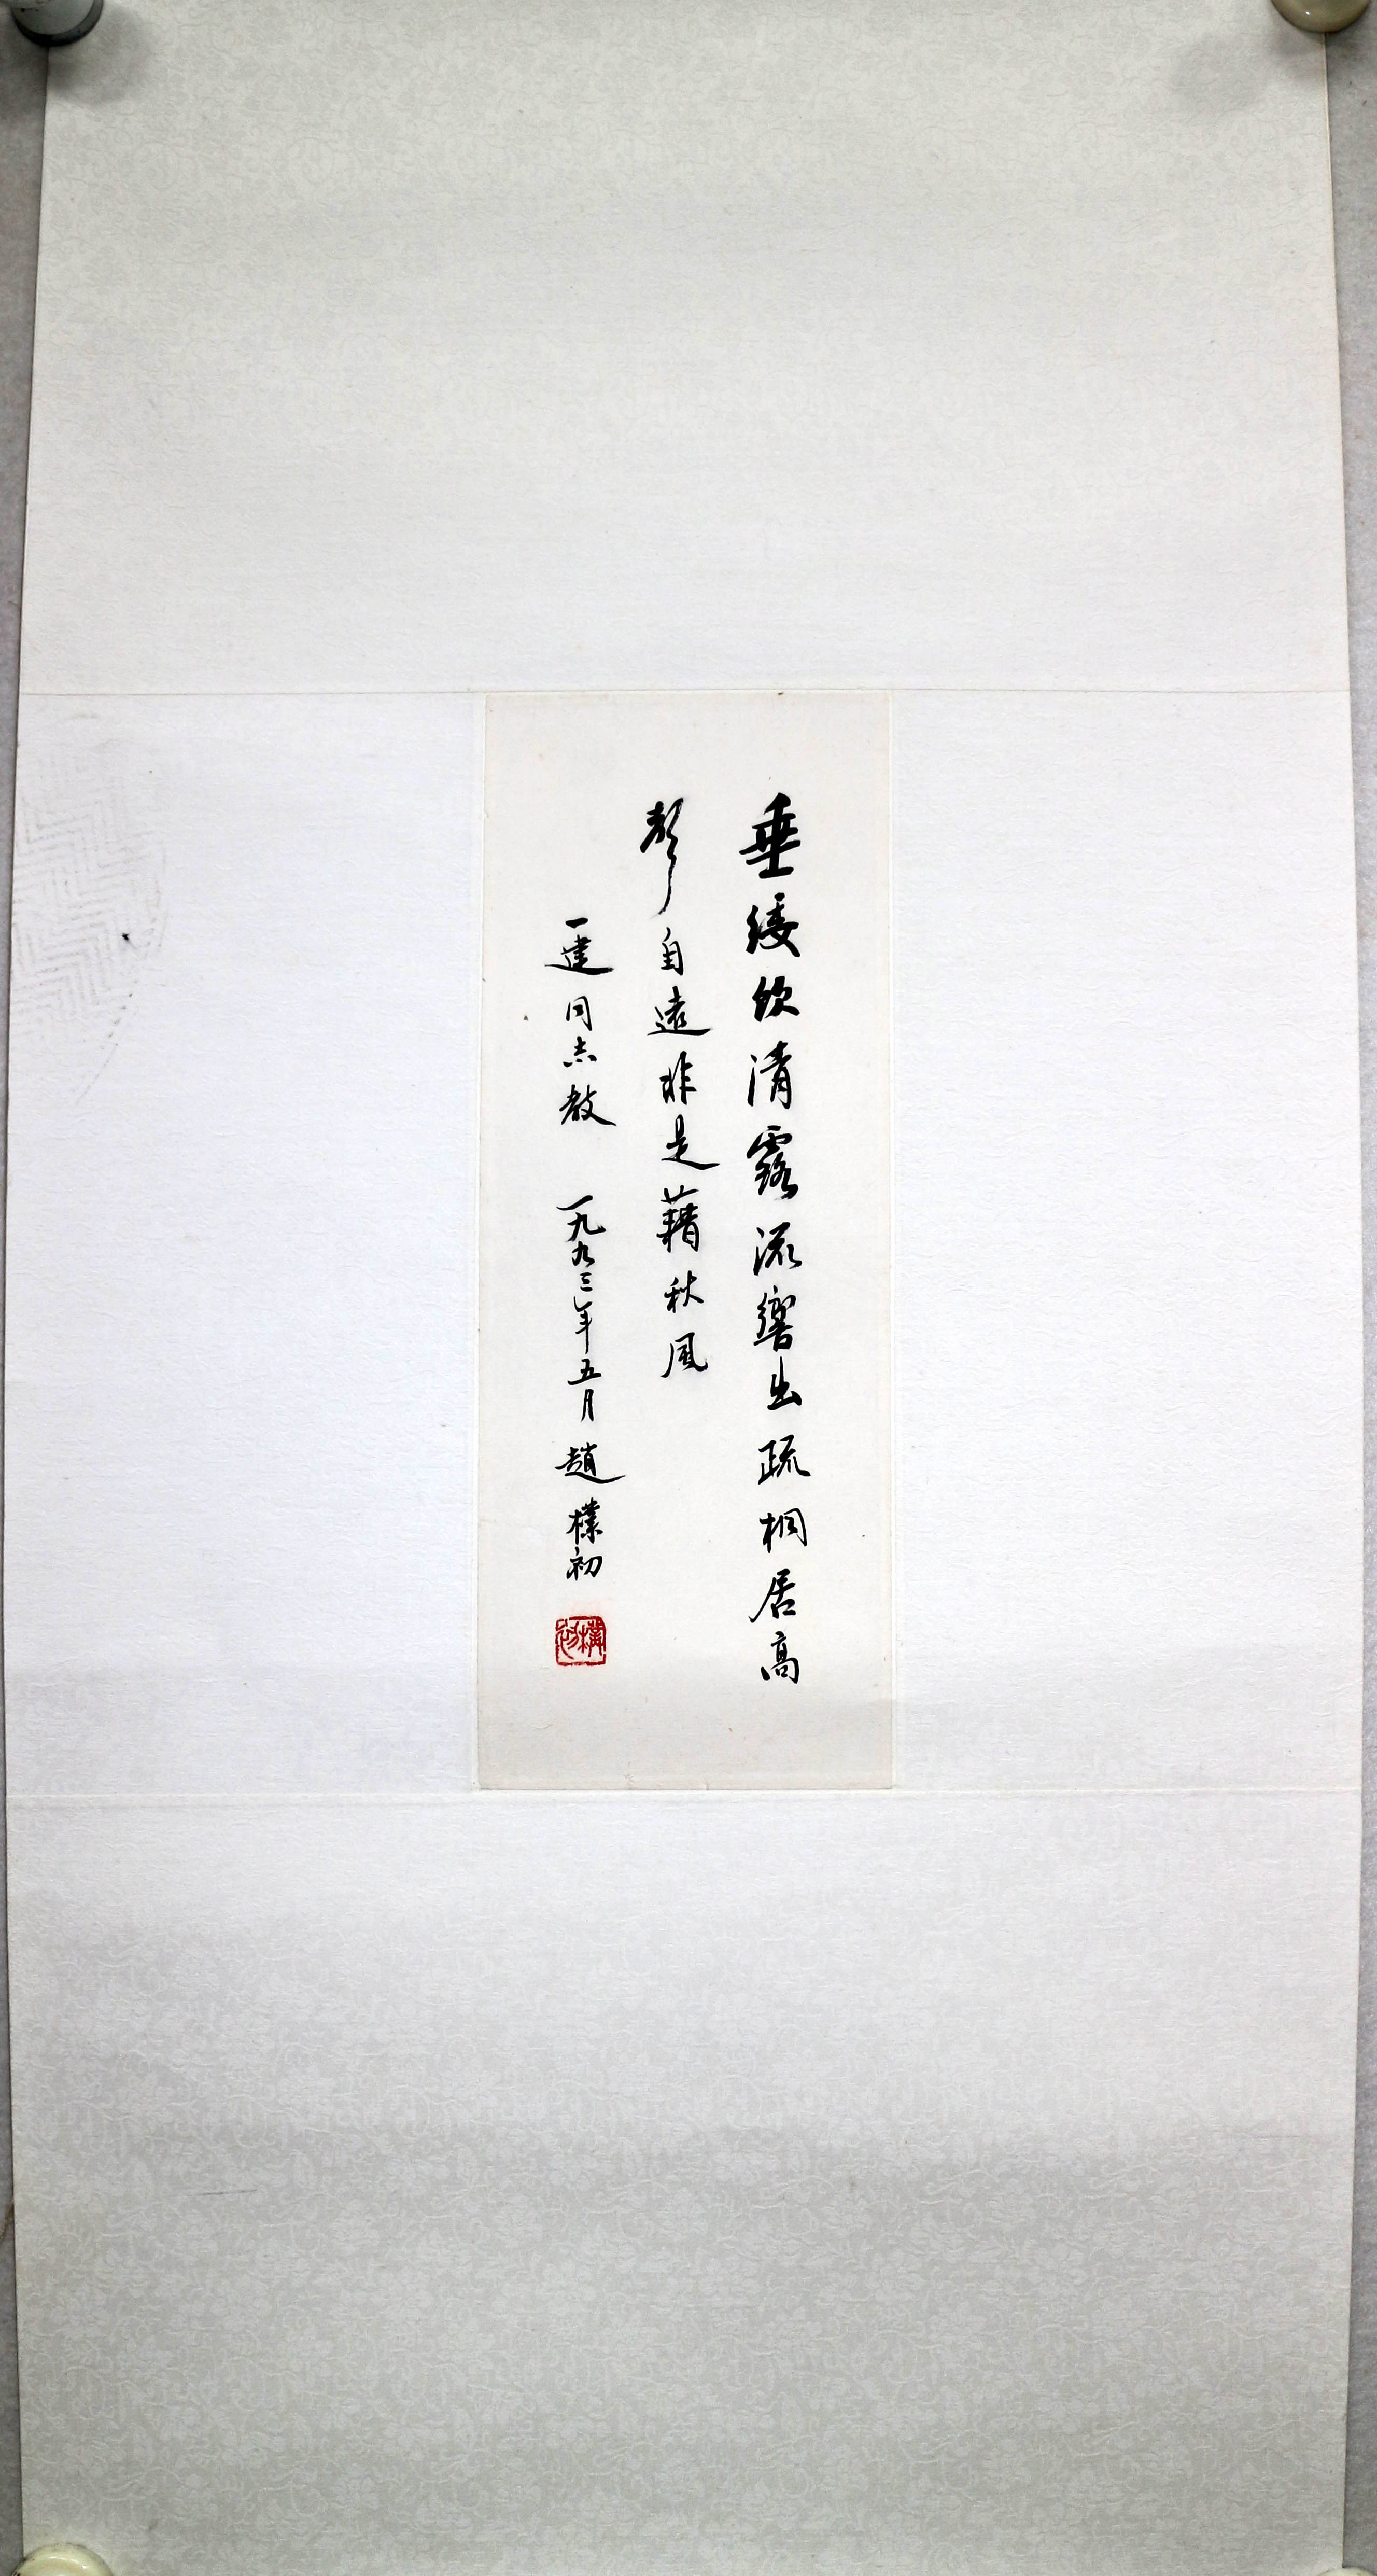 垂緌飲清露流響出疏桐居高
聲自遠非是藉秋風
一建同志教 一九九三年五月 趙樸初
樸初